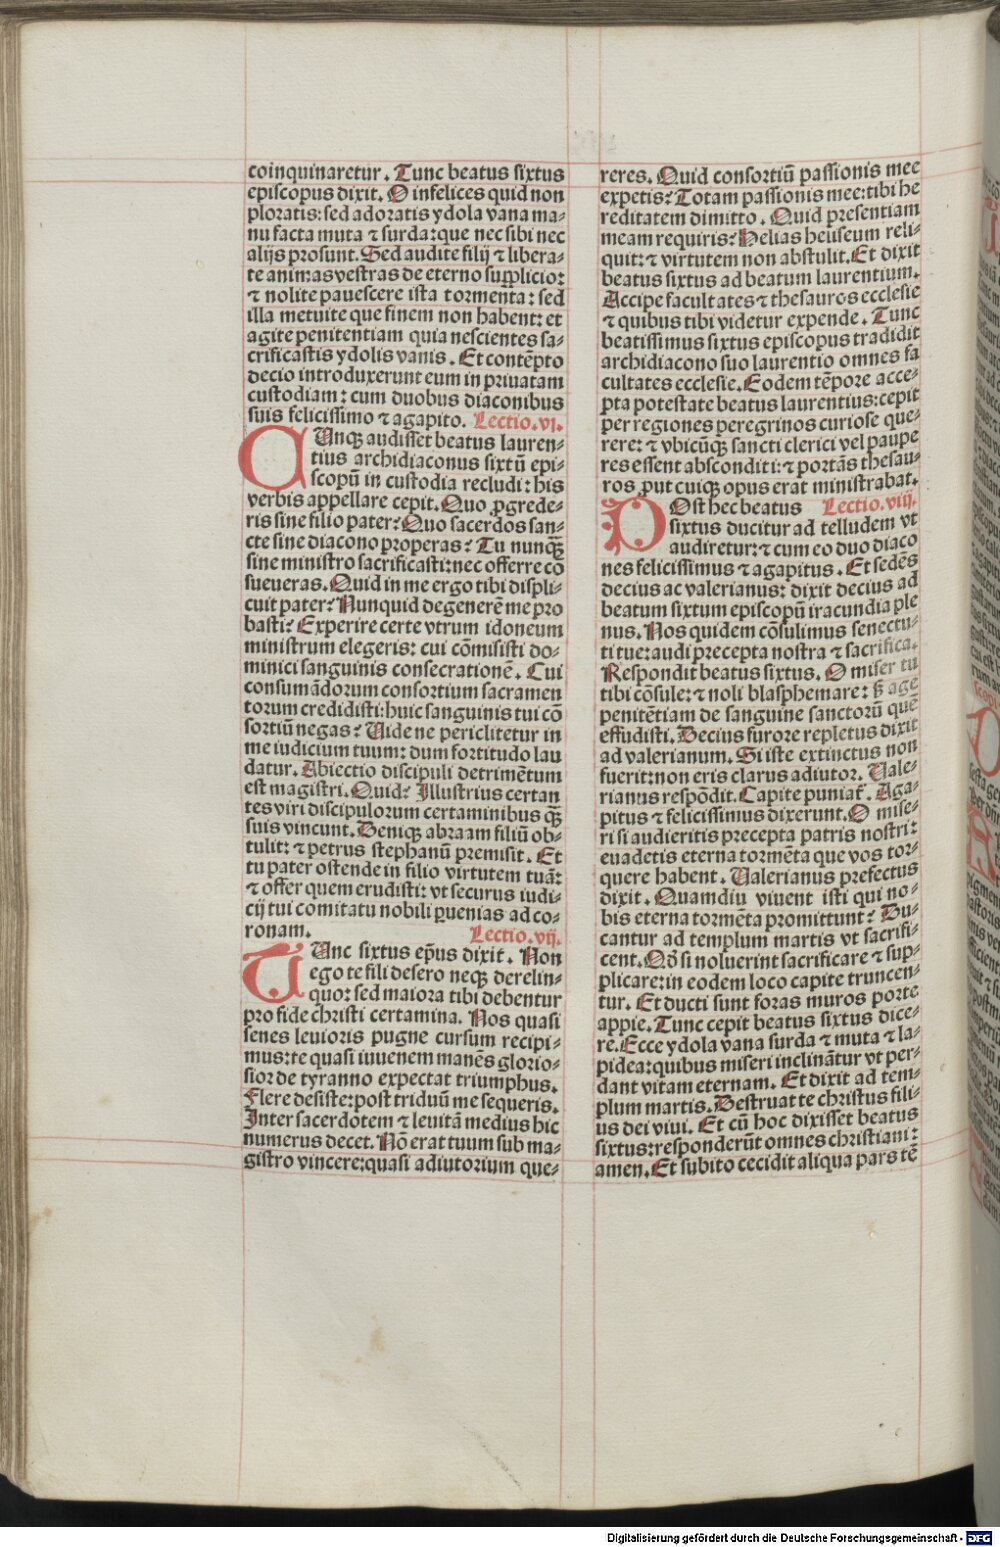 coinquinaretur. Tunc beatus sixtus
episcopus dixit. O infelices quid non
ploratis: sed adoratis ydola vana ma-
nu facta muta ⁊ surda: que nec sibi nec
alijs prosunt. Sed audite filij ⁊ libera-
te animas vestras de eterno supplicio:
⁊ nolite pauescere ista tormenta: sed
illa metuite que finem non habent: et
agite penitentiam quia nescientes sa-
crificastis ydolis vanis. Et contēpto
decio introduxerunt eum in priuatam
custodiam: cum duobus diaconibus
suis felicissimo ⁊ agapito. Lectio.vi.
CUnqꝫ audisset beatus lauren-
tius archidiaconus sixtū epi-
scopū in custodia recludi: his
verbis appellare cepit. Quo ꝓgrede-
ris sine filio pater? Quo sacerdos san-
cte sine diacono properas? Tu nunqꝫ̄
sine ministro sacrificasti: nec offerre cō
sueueras. Quid in me ergo tibi displi-
cuit pater? Nunquid degenerē me pro
basti? Experire certe vtrum idoneum
ministrum elegeris: cui cōmisisti do-
minici sanguinis consecrationē. Cui
consumādorum consortium sacramen
torum credidisti: huic sanguinis tui cō
sortiū negas? Uide ne periclitetur in
me iudicium tuum: dum fortitudo lau
datur. Abiectio discipuli detrimētum
est magistri. Quid? Illustrius certan
tes viri discipulorum certaminibus qꝫ̄
suis vincunt. Deniqꝫ abraam filiū ob-
tulit: ⁊ petrus stephanū premisit. Et
tu pater ostende in filio virtutem tuā:
⁊ offer quem erudisti: vt securus iudi-
cij tui comitatu nobili ꝑuenias ad co-
ronam. Lectio.vij.
TUnc sixtus ep̄us dixit. Non
ego te fili desero neqꝫ derelin-
quo: sed maiora tibi debentur
pro fide christi certamina. Nos quasi
senes leuioris pugne cursum recipi-
mus: te quasi iuuenem manēs glorio-
sior de tyranno expectat triumphus.
Flere desiste: post triduū me sequeris.
Inter sacerdotem ⁊ leuitā medius hic
numerus decet. Nō erat tuum sub ma-
gistro vincere: quasi adiutorium que-
reres. Quid consortiū passionis mee
expetis? Totam passionis mee: tibi he
reditatem dimitto. Quid presentiam
meam requiris? Helias heliseum reli-
quit: ⁊ virtutem non abstulit. Et dixit
beatus sixtus ad beatum laurentium.
Accipe facultates ⁊ thesauros ecclesie
⁊ quibus tibi videtur expende. Tunc
beatissimus sixtus episcopus tradidit
archidiacono suo laurentio omnes fa
cultates ecclesie. Eodem tēpore acce-
pta potestate beatus laurentius: cepit
per regiones peregrinos curiose que-
rere: ⁊ vbicūqꝫ sancti clerici vel paupe
res essent absconditi: ⁊ portās thesau-
ros ꝓut cuiqꝫ opus erat ministrabat.
POst hec beatus Lectio.viij.
sixtus ducitur ad telludem vt
audiretur: ⁊ cum eo duo diaco
nes felicissimus ⁊ agapitus. Et sedēs
decius ac valerianus: dixit decius ad
beatum sixtum episcopū iracundia ple
nus. Nos quidem cōsulimus senectu-
ti tue: audi precepta nostra ⁊ sacrifica.
Respondit beatus sixtus. O miser tu
tibi cōsule: ⁊ noli blasphemare: ß age
penitētiam de sanguine sanctorū quē
effudisti. Decius furore repletus dixit
ad valerianum. Si iste extinctus non
fuerit: non eris clarus adiutor. Vale-
rianus respōdit. Capite puniat᷑. Aga-
pitus ⁊ felicissimus dixerunt. O mise-
ri si audieritis precepta patris nostri:
euadetis eterna tormēta que vos tor-
quere habent. Valerianus prefectus
dixit. Quamdiu viuent isti qui no-
bis eterna tormēta promittunt? Du-
cantur ad templum martis vt sacrifi-
cent. Qō si noluerint sacrificare ⁊ sup-
plicare: in eodem loco capite truncen-
tur. Et ducti sunt foras muros porte
appie. Tunc cepit beatus sixtus dice-
re. Ecce ydola vana surda ⁊ muta ⁊ la-
pidea: quibus miseri inclinātur vt per-
dant vitam eternam. Et dixit ad tem-
plum martis. Destruat te christus fili-
us dei viui. Et cū hoc dixisset beatus
sixtus: responderūt omnes christiani:
amen. Et subito cecidit aliqua pars tē
Digitalisierung gefördert durch die Deutsche Forschungsgemeinschaft - DFG